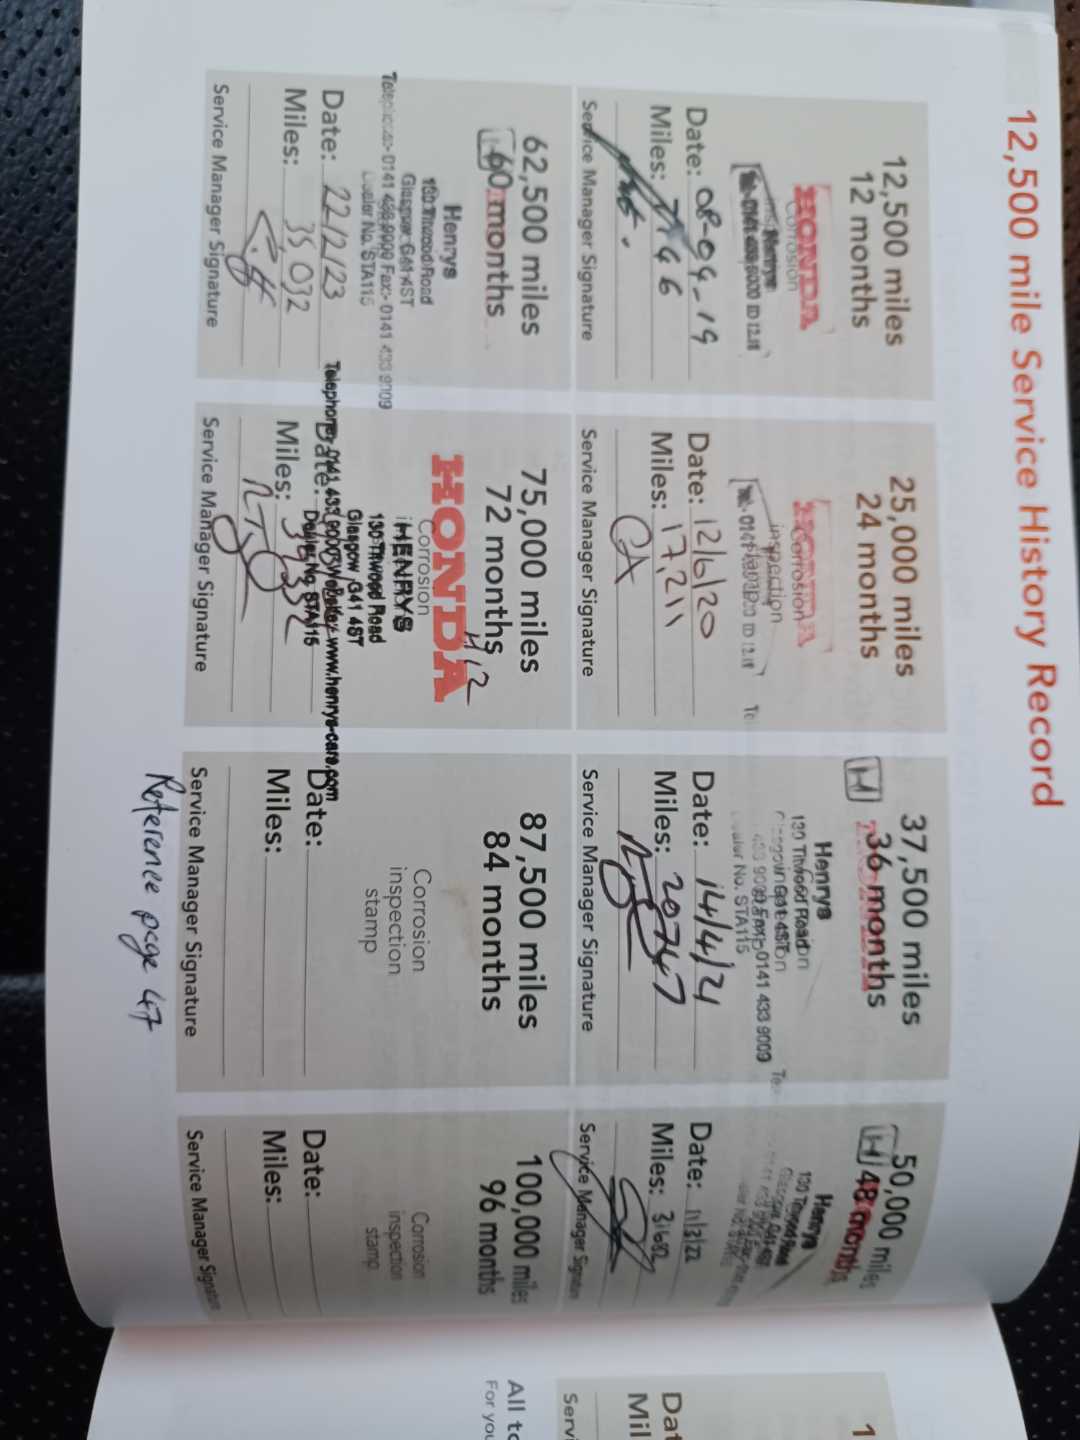 12,500 mile Service History Record
12,500 miles
12 months
HONDA
Corrosion
Henrys
Date: 08-04-19
Miles:
Service Manager Signature
25,000 miles
24 months
Corrosion
inspection
Date: 12/6/20
Miles: 17,211
Service Manager Signature
37,500 miles
36 months
H
Henrys
130 Titwood Road
0141 433 9009
Dealer No. STA115
Date: 14/4/21
Miles: 20747
Service Manager Signature
50,000 miles
H 48 months
Henrys
Date: 11/3/22
Miles: 31682
Service Manager Signature
62,500 miles
60 months
Henrys
130 Titwood Road
Glasgow G41 4ST
Telephone:- 0141 433 9009 Fax:- 0141 433 9009
Dealer No. STA115
Date: 22/2/23
Miles: 35,092
Service Manager Signature
75,000 miles
72 months
H12
HONDA
Corrosion
HENRYS
130 Titwood Road
Glasgow G41 4ST
Telephone: 0141 433 9009 www.henrys-cars.com
Dealer No. STA115
Date:
Miles:
Service Manager Signature
87,500 miles
84 months
Corrosion
inspection
stamp
Date:
Miles:
Service Manager Signature
100,000 miles
96 months
Corrosion
inspection
stamp
Date:
Miles:
Service Manager Signature
Reference page 47
1
Dat
Mil
Servi
All to
For you